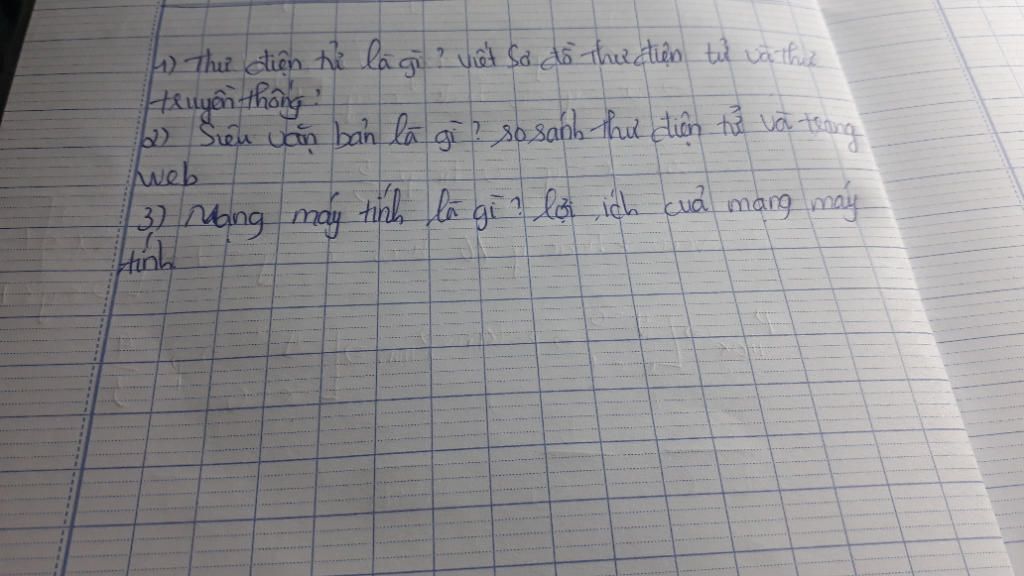 1) Thư điện tử là gì? viết sơ đồ thư điện tử và thư
truyền thống?
2) Siêu văn bản là gì? so sánh thư điện tử và trang
web
3) Mạng máy tính là gì? lợi ích của mạng máy
tính